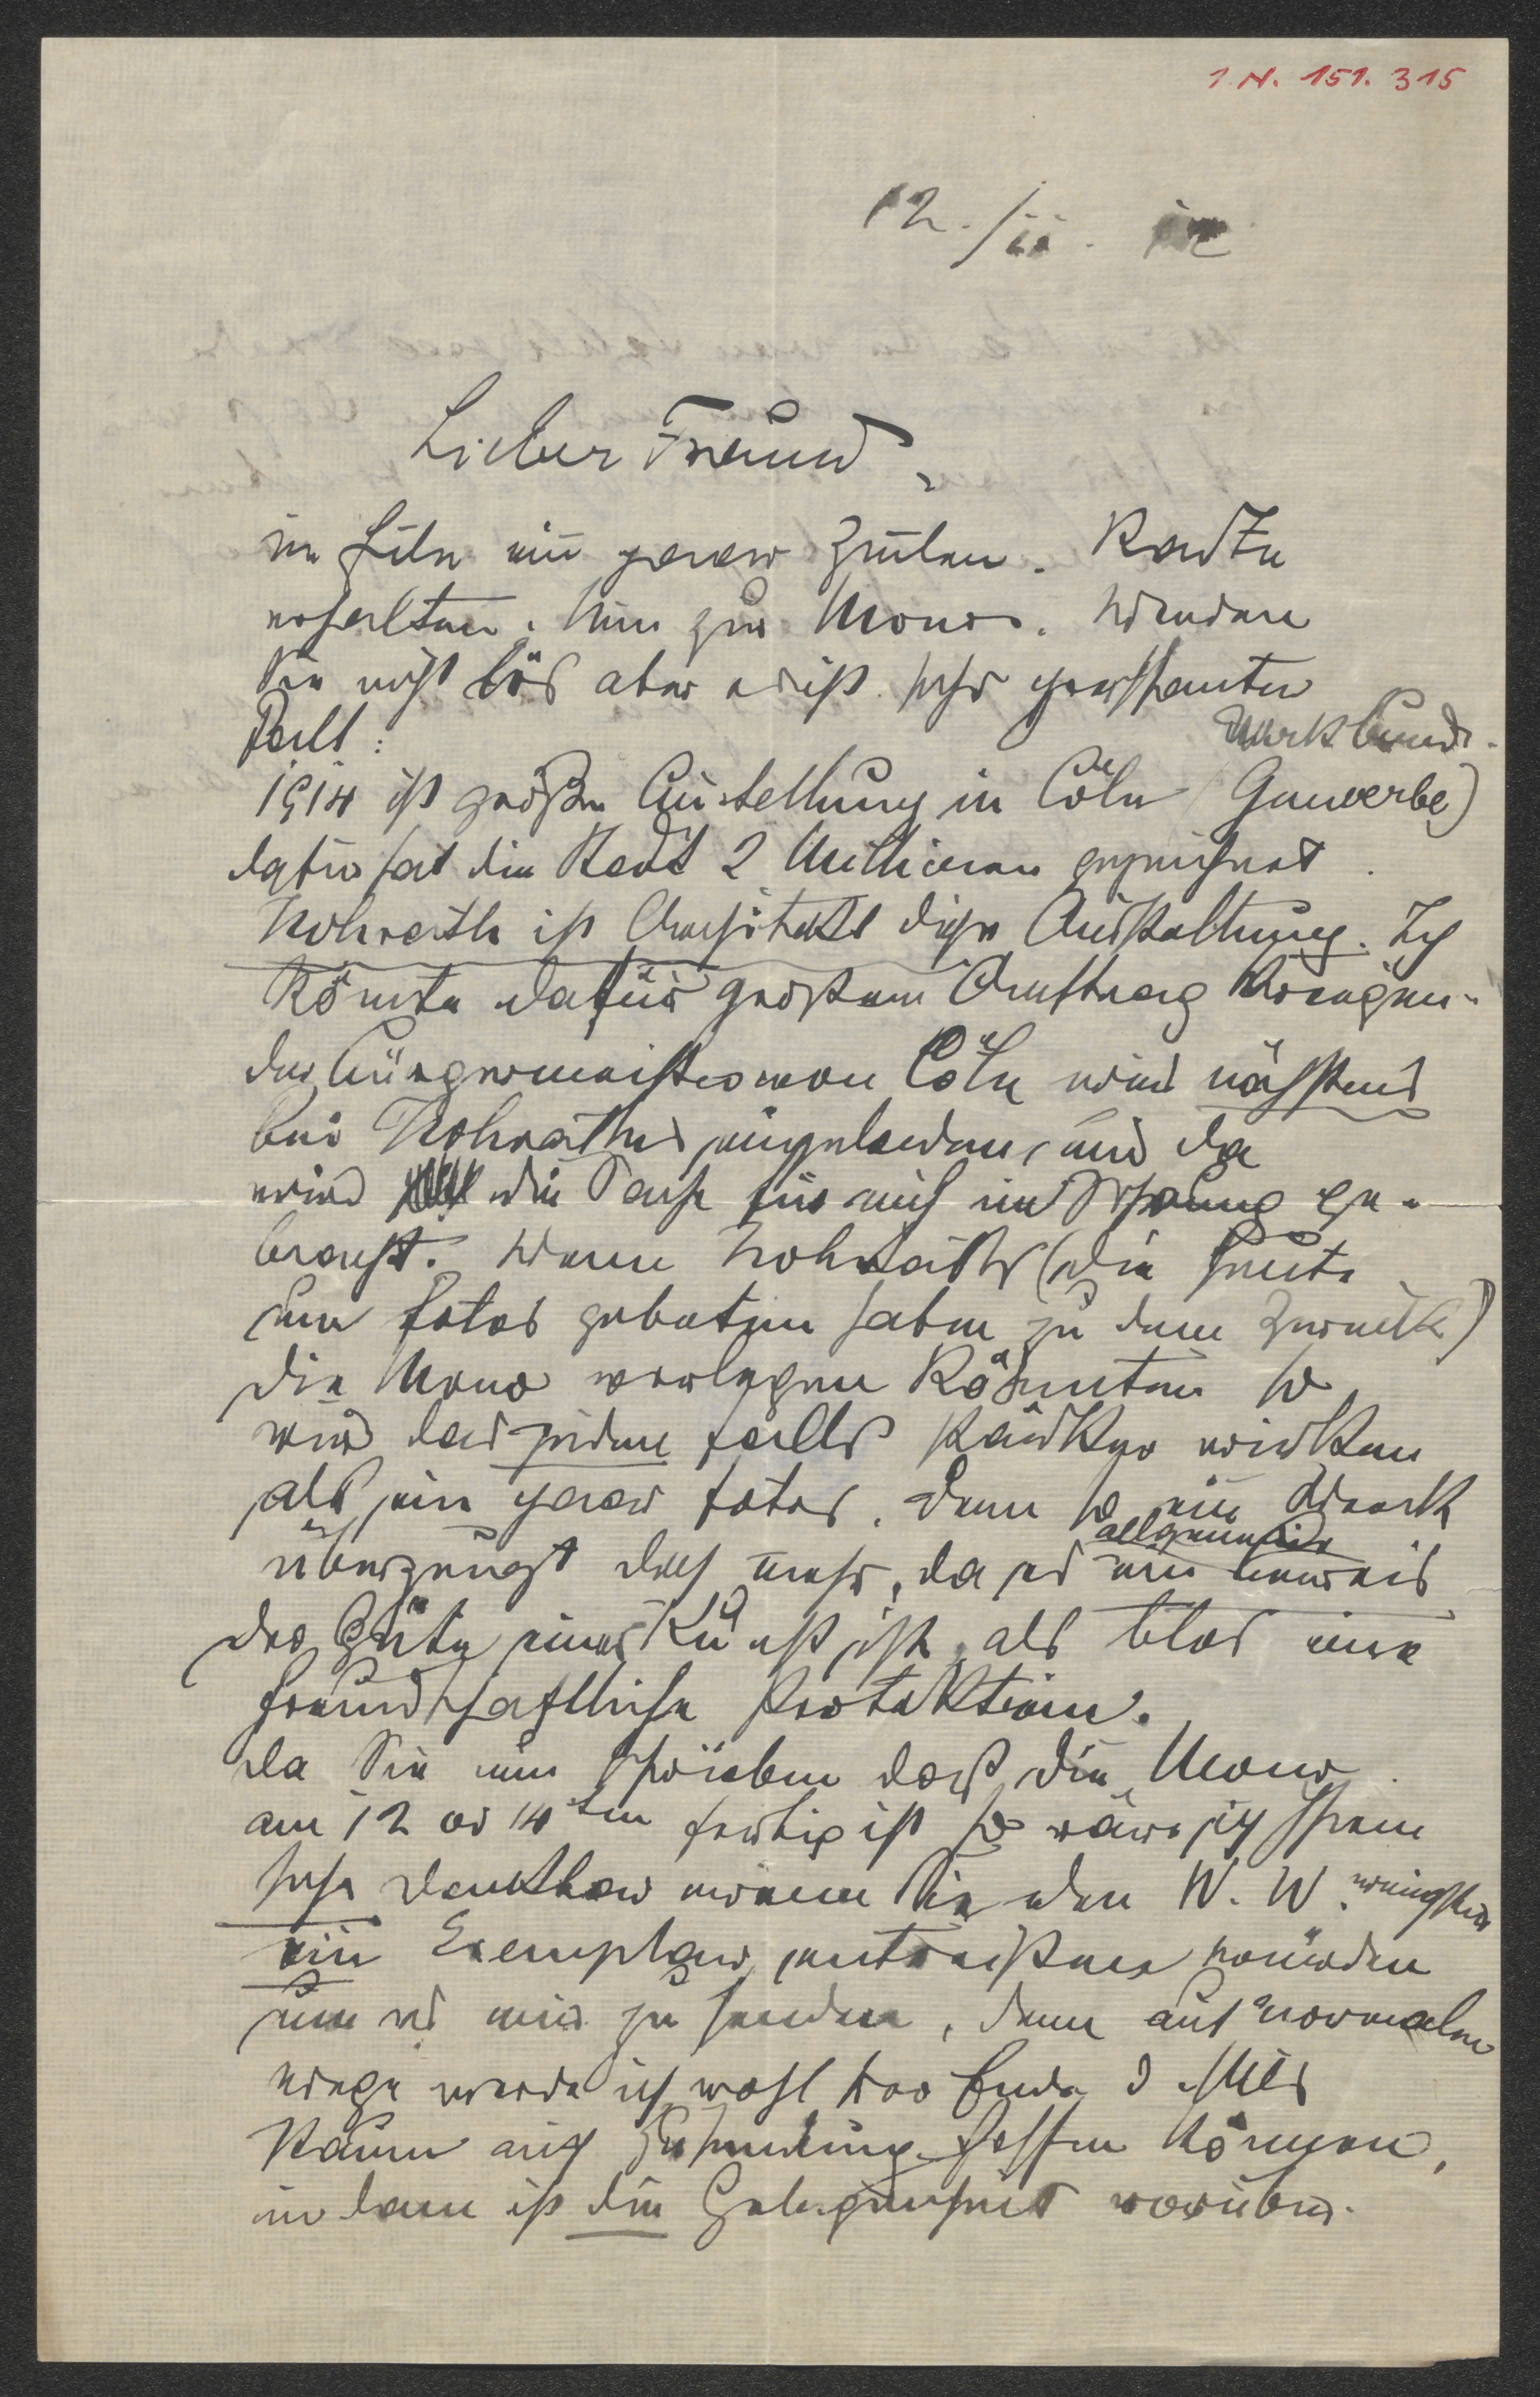 I. N. 151.315
12./II.
Lieber Freund,
in Eile ein paar Zeilen. Karte
erhalten. Nun zur Monos. Werden
Sie nicht bös aber ist sehr
Fall:
Werkbund.
1914 ist große Ausstellung in Cöln (Gewerbe)
dafür hat die Stadt 2 Millionen gezeichnet.
Nohrath ist Architekt dieser Ausstellung. Ich
könnte dafür großen Auftrag kriegen.
der Bürgermeister von Cöln wird nächstens
bei Nohraths eingeladen, und da
wird die Sache für mich in Schwung ge-
bracht. Wenn Nohraths (die heute
um Fotos gebeten haben zu dem Zweck)
die Mono vorlegen könnten so
wird das jeden falls stärker wirken
als ein paar Fotos. Denn so ein Werk
überzeugt doch mehr, da es ein allgemeiner Beweis
der Güte einer Kunst ist, als blos eine
freundschaftliche Protektion.
Da Sie nun schrieben daß die Mono
am 12 od 14ten fertig ist so wäre ich Ihnen
sehr dankbar wenn Sie den W. W. wenigstens
ein Exemplar entreißen würden
um es mir zu senden, denn auf normalem
Wege werde ich wohl vor Ende d Mts
kaum auf Zusendung hoffen können,
u dann ist die Gelegenheit vorüber.